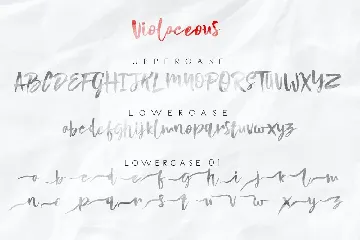 Violaceous
UPPERCASE
ABCDEFGHIJKLMNOPQRSTUVWXYZ
LOWERCASE
abcdefghijklmnopqrstuvwxyz
LOWERCASE 01
a b c d e f g h i j k l m
n o p q r s t u v w x y z